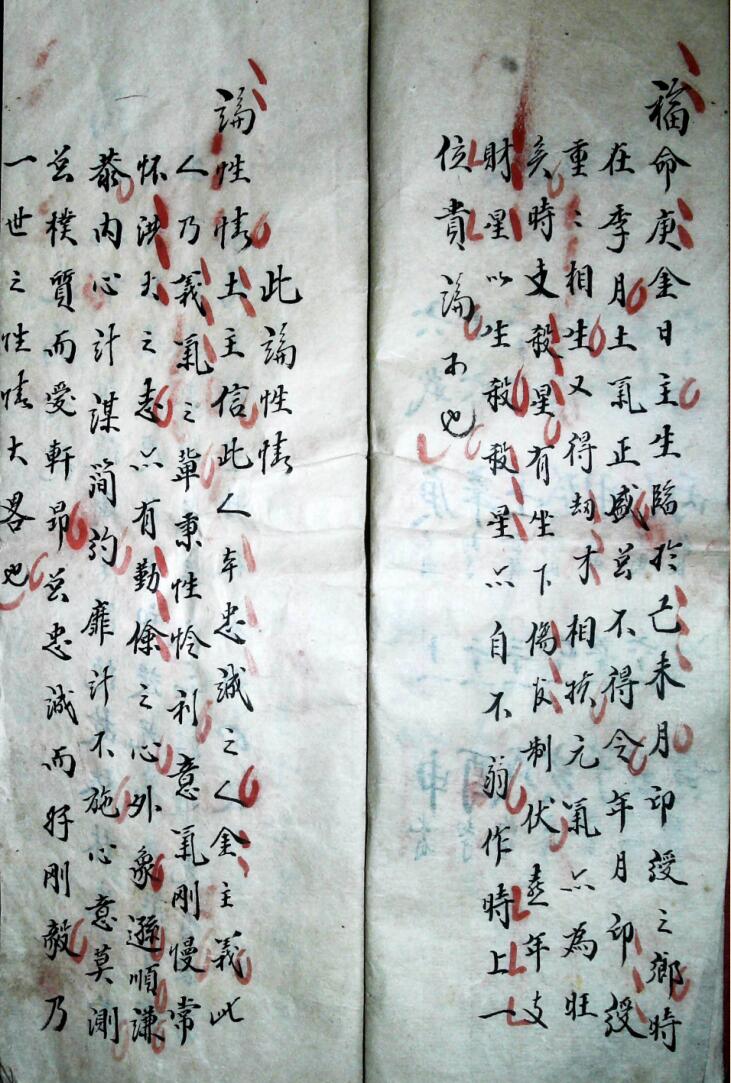 福命庚金日主生臨於己未月印綬之鄉時
在季月土氣正盛豈不得令年月印綬
重〻相生又得劫才相扶元氣亦為旺
矣時支殺星有坐下傷官制伏年支
財星以生殺殺星亦自不弱作時上一
位貴論可也
此論性情
論性情土主信此人本忠誠之人金主義此
人乃義氣之輩秉性怜利意氣剛慢常
怀洪大之志亦有勤儉之心外象遜順謙
恭內心計謀簡約靡計不施心意莫測
豈樸質而愛軒昂豈忠誠而好剛毅乃
一世之性情大畧也